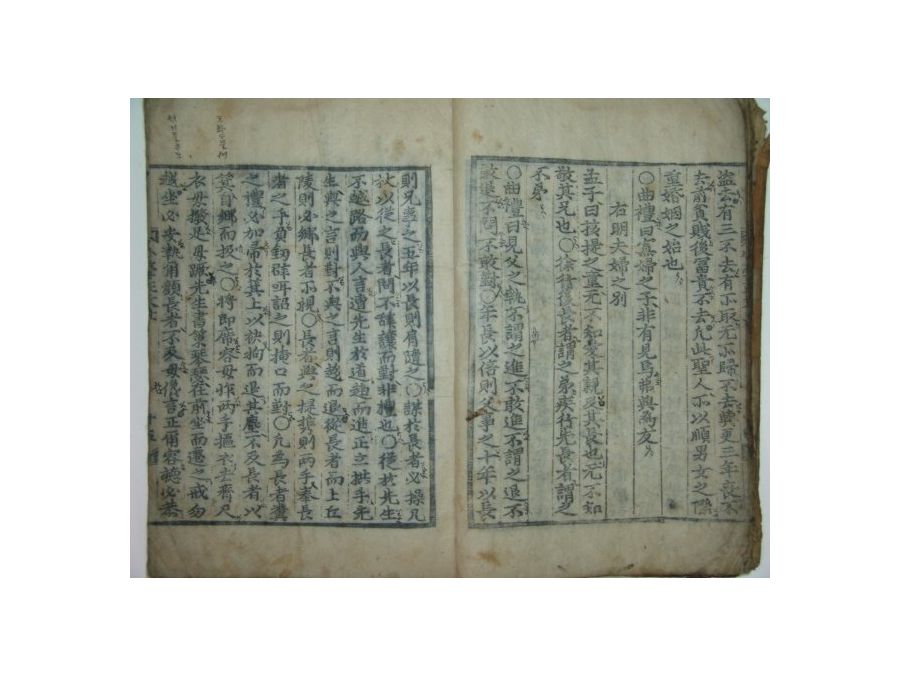 盜去有三不去有所取无所歸不去與更三年喪不
去前貧賤後冨貴不去凡此聖人所以順男女之際
重婚姻之始也
○曲禮曰寡婦之子非有見焉弗與為友
右明夫婦之別
孟子曰孩提之童无不知愛其親及其長也无不知
敬其兄也○徐行後長者謂之弟疾行先長者謂之
不弟
○曲禮曰見父之執不謂之進不敢進不謂之退不
敢退不問不敢對○年長以倍則父事之十年以長
則兄事之五年以長則肩隨之○謀於長者必操几
杖以從之長者問不辭讓而對非禮也○從於先生
不越路而與人言遭先生於道趨而進正立拱手先
生與之言則對不與之言則趨而退從長者而上丘
陵則必鄉長者所視○長者與之提携則兩手奉長
者之手負劒辟咡詔之則掩口而對○凡為長者糞
之禮必加帚於箕上以袂拘而退其塵不及長者以
箕自鄉而扱之○將即席容毋怍兩手摳衣去齊尺
衣毋撥足毋蹶先生書策琴瑟在前坐而遷之戒勿
越坐必安執爾顏長者不及毋儳言正爾容聽必恭